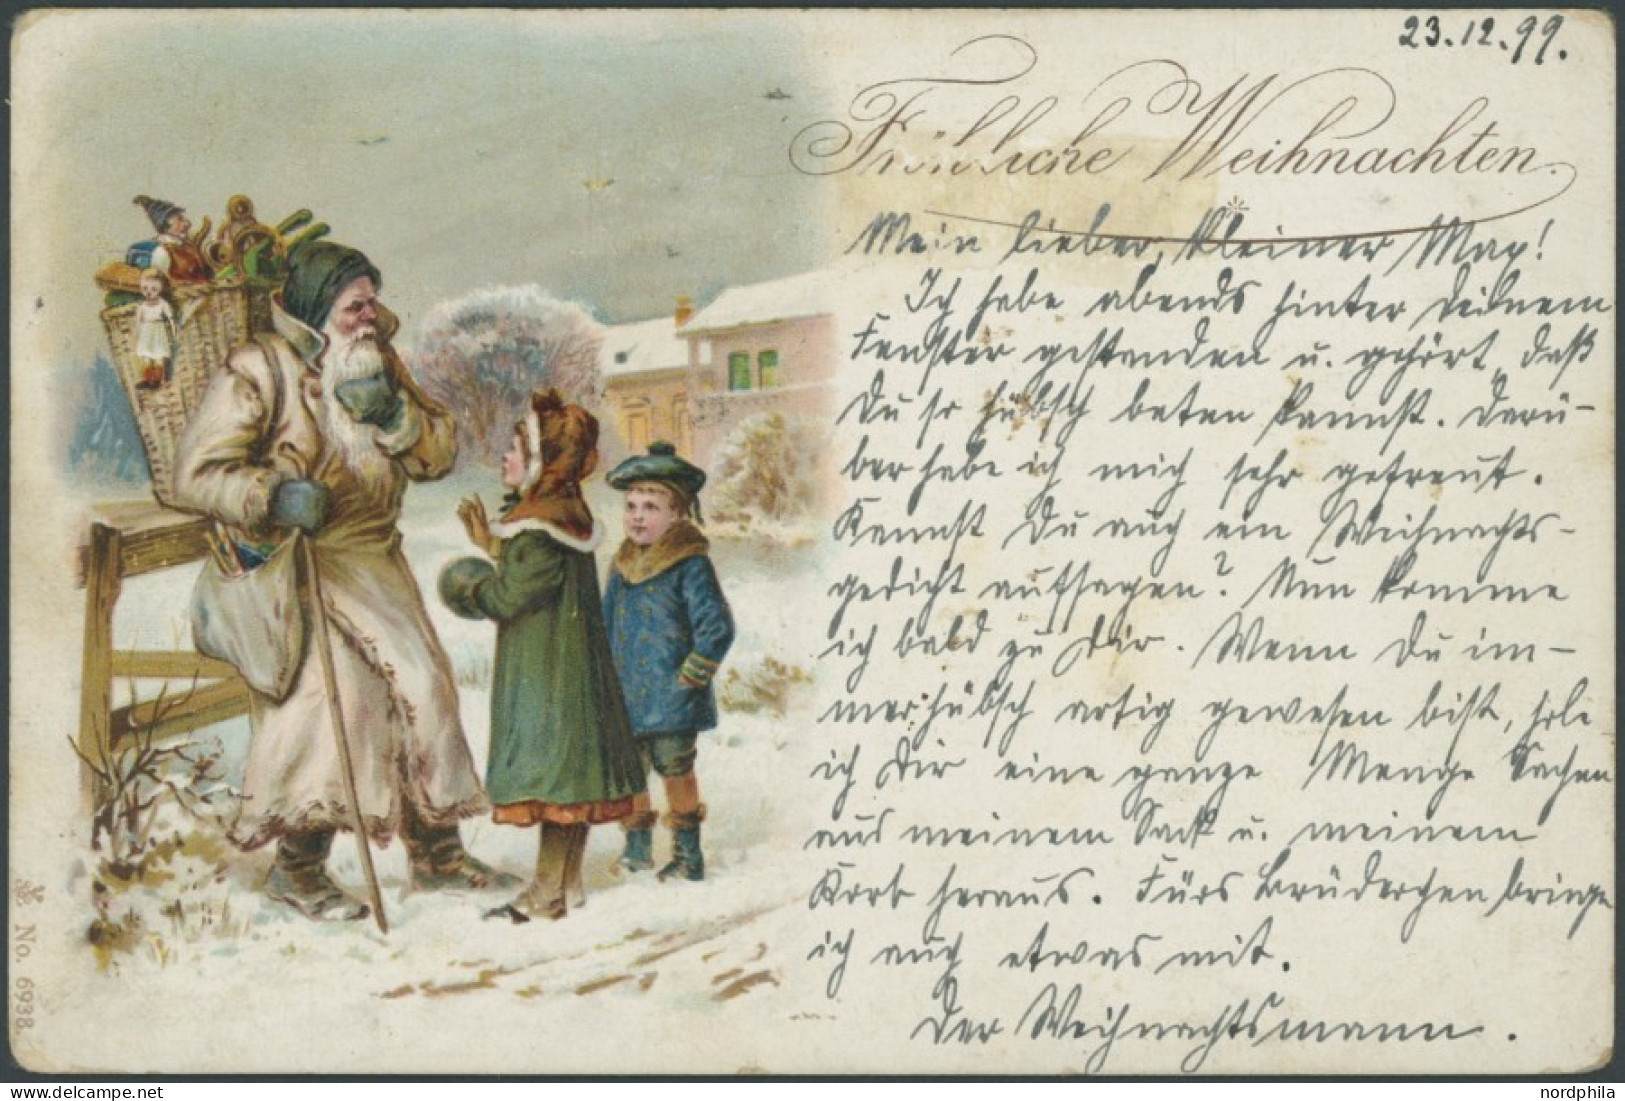 23.12.99.
Fröhliche Weihnachten.
Mein lieber, kleiner Max!
Ich habe abends hinter Deinem
Fenster gestanden u. gehört, daß
Du so hübsch beten kannst. Darü-
ber habe ich mich sehr gefreut.
Kannst Du auch ein Weihnachts-
gedicht aufsagen? Nun komme
ich bald zu Dir. Wenn Du im-
mer hübsch artig gewesen bist, hole
ich Dir eine ganze Menge Sachen
aus meinem Sack u. meinem
Korb heraus. Fürs Brüderchen bringe
ich auch etwas mit.
Der Weihnachtsmann.
No. 6938.
nordphila